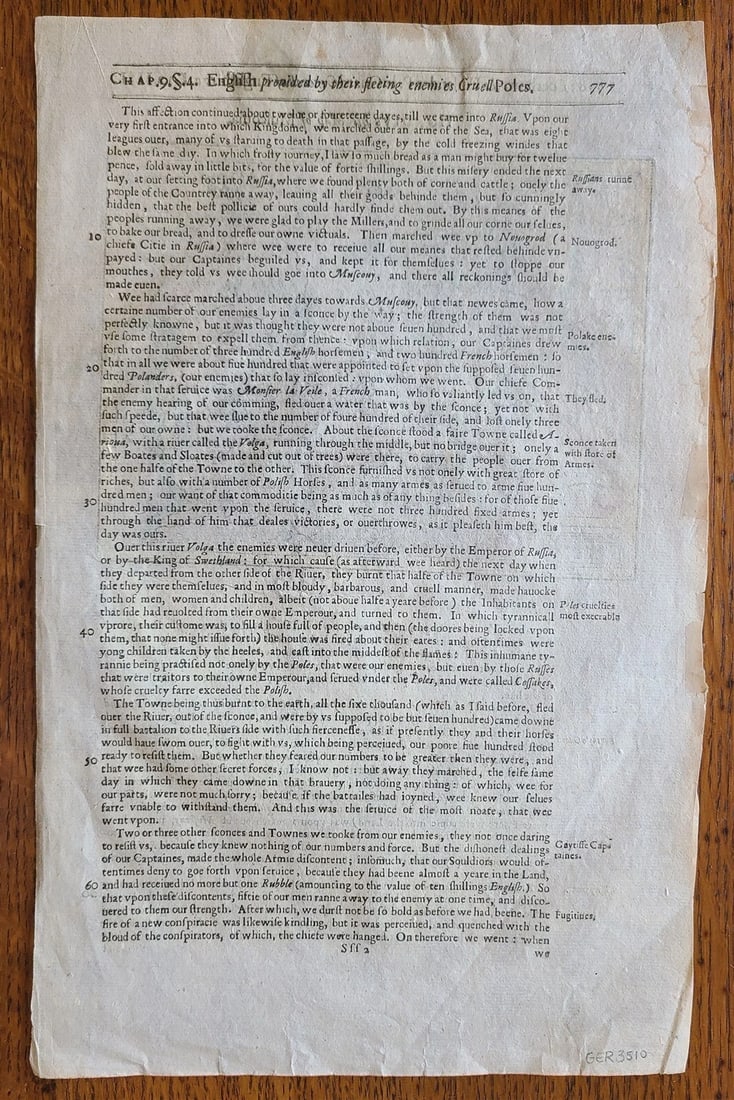 CHAP.9.§.4. English provided by their fleeing enemies Cruell Poles. 777
This affection continued about twelue or foureteene dayes, till we came into Ruſſia. Vpon our
very firſt entrance into which Kingdome, we marched ouer an arme of the Sea, that was eight
leagues ouer, many of vs ſtaruing to death in that paſſage, by the cold freezing windes that
blew the ſame day. In which froſty iourney, I ſaw ſo much bread as a man might buy for twelue
pence, ſold away in little bits, for the value of fortie ſhillings. But this miſery ended the next
day, at our ſetting foot into Ruſſia, where we found plenty both of corne and cattle; onely the
Ruſſians runne
away.
people of the Countrey ranne away, leauing all their goods behinde them, but ſo cunningly
hidden, that the beſt pollicie of ours could hardly finde them out. By this meanes of the
peoples running away, we were glad to play the Millers, and to grinde all our corne our ſelues,
10 to bake our bread, and to dreſſe our owne victuals. Then marched wee vp to Nouogrod (a
Nouogrod.
chiefe Citie in Ruſſia) where wee were to receiue all our meanes that reſted behinde vn-
payed: but our Captaines beguiled vs, and kept it for themſelues: yet to ſtoppe our
mouthes, they told vs wee ſhould go into Muſcouy, and there all reckonings ſhould be
made euen.
Wee had ſcarce marched aboue three dayes towards Muſcouy, but that newes came, how a
certaine number of our enemies lay in a ſconce by the way; the ſtrength of them was not
perfectly knowne, but it was thought they were not aboue ſeuen hundred, and that we muſt
vſe ſome ſtratagem to expell them from thence: vpon which relation, our Captaines drew
Polake ene-
mies.
forth to the number of three hundred Engliſh horſemen; and two hundred French horſemen: ſo
20 that in all we were about fiue hundred that were appointed to ſet vpon the ſuppoſed ſeuen hun-
dred Polanders, (our enemies) that ſo lay inſconſed: vpon whom we went. Our chiefe Com-
mander in that ſeruice was Monſier la Veile, a French man, who ſo valiantly led vs on, that
They fled,
the enemy hearing of our comming, fled ouer a water that was by the ſconce; yet not with
ſuch ſpeede, but that wee ſlue to the number of foure hundred of their ſide, and loſt onely three
men of our owne: but we tooke the ſconce. About the ſconce ſtood a faire Towne called A-
rioua, with a riuer called the Volga, running through the middle, but no bridge ouer it; onely a
Sconce taken
with ſtore of
Armes.
few Boates and Sloates (made and cut out of trees) were there, to carry the people ouer from
the one halfe of the Towne to the other. This ſconce furniſhed vs not onely with great ſtore of
riches, but alſo with a number of Poliſh Horſes, and as many armes as ſerued to arme fiue hun-
dred men; our want of that commoditie being as much as of any thing beſides: for of thoſe fiue
30 hundred men that went vpon the ſeruice, there were not three hundred fixed armes; yet
through the hand of him that deales victories, or ouerthrowes, as it pleaſeth him beſt, the
day was ours.
Ouer this riuer Volga the enemies were neuer driuen before, either by the Emperor of Ruſſia,
or by the King of Swethland: for which cauſe (as afterward wee heard) the next day when
they departed from the other ſide of the Riuer, they burnt that halfe of the Towne on which
ſide they were themſelues, and in moſt bloudy, barbarous, and cruell manner, made hauocke
both of men, women and children, albeit (not aboue halfe a yeare before) the Inhabitants on
Poles cruelties
moſt execrable
that ſide had reuolted from their owne Emperour, and turned to them. In which tyrannicall
vprore, their cuſtome was, to fill a houſe full of people, and then (the doores being locked vpon
40 them, that none might iſſue forth) the houſe was fired about their eares: and oftentimes were
yong children taken by the heeles, and caſt into the middeſt of the flames: This inhumane ty-
rannie being practiſed not onely by the Poles, that were our enemies, but euen by thoſe Ruſſes
that were traitors to their owne Emperour, and ſerued vnder the Poles, and were called Coſſakes,
whoſe cruelty farre exceeded the Poliſh.
The Towne being thus burnt to the earth, all the ſixe thouſand (which as I ſaid before, fled
ouer the Riuer, out of the ſconce, and were by vs ſuppoſed to be but ſeuen hundred) came downe
in full battalion to the Riuers ſide with ſuch fierceneſſe, as if preſently they and their horſes
would haue ſwom ouer, to fight with vs, which being perceiued, our poore fiue hundred ſtood
50 ready to reſiſt them. But whether they feared our numbers to be greater then they were, and
that wee had ſome other ſecret forces, I know not: but away they marched, the ſelfe ſame
day in which they came downe in that brauery, not doing any thing: of which, wee for
our parts, were not much ſorry; becauſe if the battailes had ioyned, wee knew our ſelues
farre vnable to withſtand them. And this was the ſeruice of the moſt noate, that wee
went vpon.
Two or three other ſconces and Townes we tooke from our enemies, they not once daring
to reſiſt vs, becauſe they knew nothing of our numbers and force. But the diſhoneſt dealings
Caytiffe Cap-
taines.
of our Captaines, made the whole Armie diſcontent; inſomuch, that our Souldiors would of-
tentimes deny to goe forth vpon ſeruice, becauſe they had beene almoſt a yeare in the Land,
60 and had receiued no more but one Rubble (amounting to the value of ten ſhillings Engliſh.) So
that vpon theſe diſcontents, fiftie of our men ranne away to the enemy at one time, and diſco-
uered to them our ſtrength. After which, we durſt not be ſo bold as before we had beene. The
Fugitiues,
fire of a new conſpiracie was likewiſe kindling, but it was perceiued, and quenched with the
bloud of the conſpirators, of which, the chiefe were hanged. On therefore we went: when
Sſſ 2
we
GER.3510